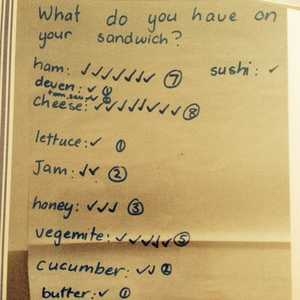 What do you have on
your sandwich?
ham: ✓✓✓✓✓✓✓ 7 sushi: ✓
devon: ✓ 1
cheese: ✓✓✓✓✓✓✓✓ 8
lettuce: ✓ 1
Jam: ✓✓ 2
honey: ✓✓✓ 3
vegemite: ✓✓✓✓✓ 5
cucumber: ✓✓ 2
butter: ✓ 1